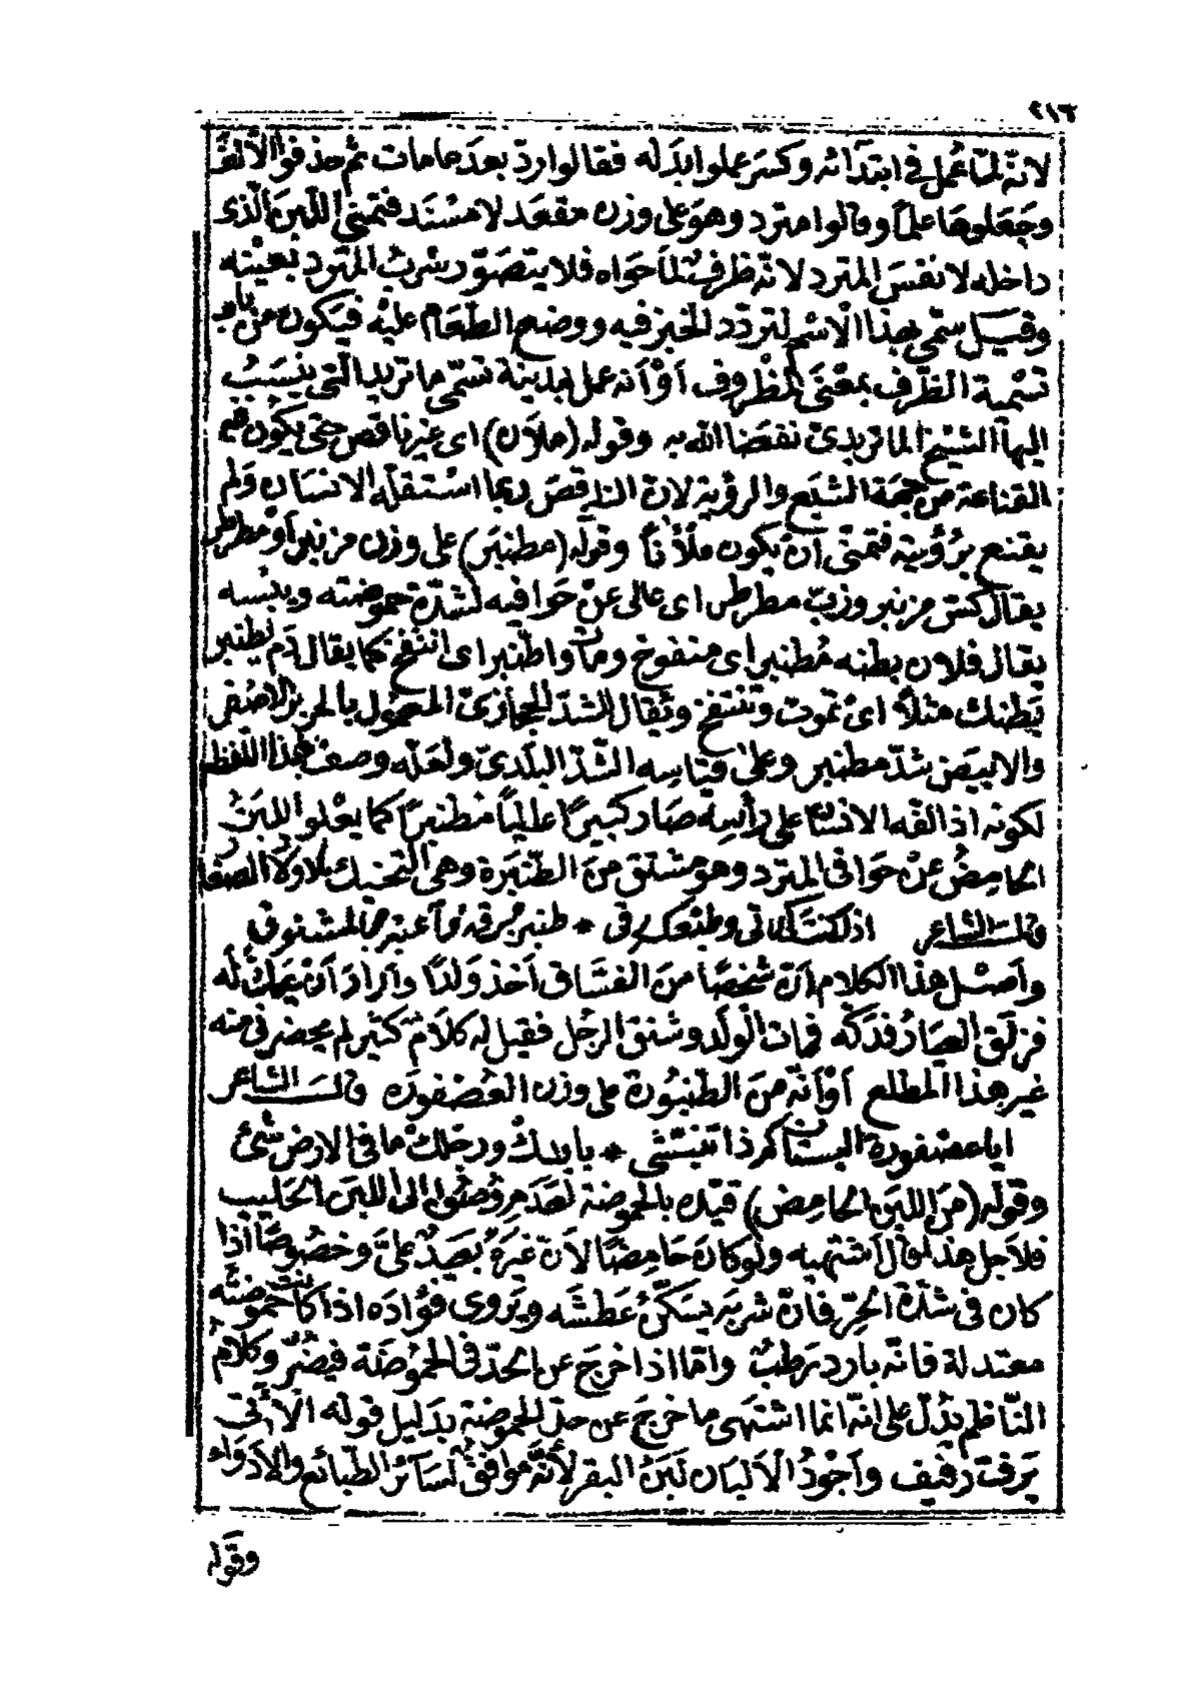 ٢١٣
لانّه لمّا عُمل في ابتدائه وكسر عملوا بدله فقالوا ردّ بعد ما مات ثم حذفوا الألف
وجعلوها علماً وقالوا مترد وهو على وزن مقعد لا مسند فتمنى اللبن الّذى
داخله لا نفسَ المترد لانّه ظرف لما حواه فلا يتصوّر شرب المترد بعينه
وقيل سمّى بهذا الاسم لتردّد الخبز فيه ووضع الطّعام عليه فيكون من باب
تسمية الظّرف بمعنى المظروف أوْ أنه عمل بمدينة تسمّى ماتريد التى ينسب
اليها الشيخ الماتريدىّ نفعنا الله به وقوله (ملآن) اى غير ناقص حتى يكون
القناعة من جهة الشبَع والرؤية لان الناقص ربما استقلّه الانسان ولم
يقنع برُؤيته فتمنّى أنْ يكون ملآناً وقوله (مطنبَر) على وزن مزنبر أو مطرطر
يقال كسّ مزنبر وزبّ مطرطر اى عالى عنْ حوافيه لشدّة حموضته ويبسه
يقال فلان بطنه مُطنبر اى منفوخ ومات واطّنبر اى انتفخ كما يقال دم يطنبر
بَطنك مثلاً اىْ تموت وتنتفخ ويُقال للشدّ الحجازىّ المعمول بالحرير الاصفر
والابيض شدّ مطنبر وعلى قياسه الشّدّ البلدىّ ولعلّه وصف بهذا اللفظ
لكونه اذا لفّه الانسان على رأسه صار كبيرًا عالياً مُطنبرًا كما يعْلو اللبَنُ
الحامِضُ عنْ حوافى المترد وهو مشتق منَ الطّنبَرة وهى التحنيك بلاولاد الصغار
قالـــ الشاعر اذا كنت وطبْعك رقى * طنبر بُرقه
وأصْل هذا الكلام أنّ شخصًا منَ الفسَاق أخذ وَلدًا وأراد أنْ يَملكه
فزلق فدكّه فمات الولد وشنق الرجُل فقيل له كلامٌ كثير لم يحضرنى منه
غير هذا المطلع أوْ أنّه منَ الطّنبُورة على وزن العُصْفورة قالـــ الشاعر
ايا عصفورة البستان كم ذا تنبشى * بايدك ورجلك ما فى الارض شئ
وقوله (منَ اللبَن الحامِض) قيّده بالحموضة لعَدم وصُوله الى اللبَن الحَليب
فلأجل هذا قال اشتهيه ولو كانَ حامِضًا لأنّ غيرَهُ بَعيدٌ علىّ وخصُوصًا اذا
كان فى شدّة الحرّ فانّ شربَه يسكّنُ عَطشَه ويَروى فؤادَه اذا كانت حموضتُه
معتدلة فانّه بارد رَطبٌ وامّا اذا خرجَ عن الحدّ فى الحموضَة فيضُرّ وكلامُ
النّاظم يدُلّ على انّه انما اشتهى ما خرجَ عن حدّ الحموضة بدَليل قوله الآتى
يرفت رفيف وأجْودُ الألبان لَبَنُ البقر لأنّه موافقٌ لسائر الطبائع والأدواء
وقوله